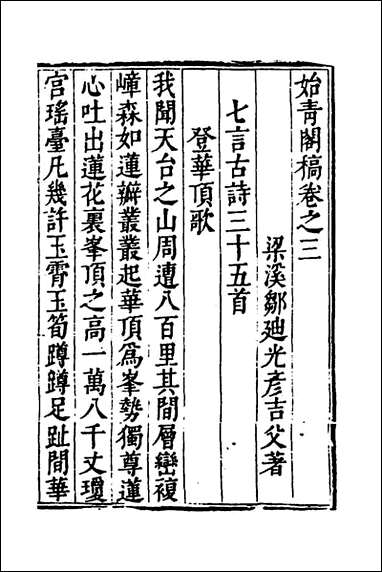 始青閣稿卷之三
梁溪鄒迪光彥吉父著
七言古詩三十五首
登華頂歌
我聞天台之山周遭八百里其間層巒複
嶂森如蓮瓣叢叢起華頂爲峯勢獨尊蓮
心吐出蓮花裏峯頂之高一萬八千丈瓊
宫瑤臺凡幾許玉霄玉筍蹲蹲足趾間華